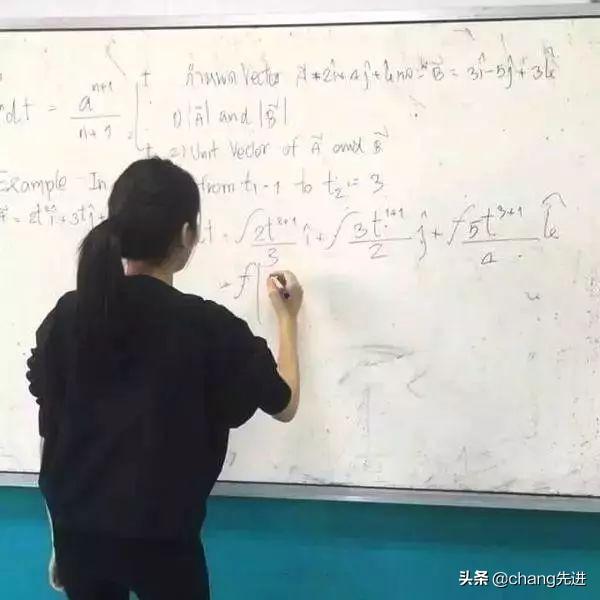 กำหนด Vector A = 2i + 4j + k และ B = 3i - 5j + 3k
dt = a^{n+1} / n+1
1) |A| and |B|
2) Unit Vector of A and B
Example In from t₁ = 1 to t₂ = 3
= 2t²i + 3tj +
dt = ∫ 2t^{2+1} / 3 i + ∫ 3t^{1+1} / 2 j + ∫ 5t^{3+1} / 4 k
头条 @chang先进